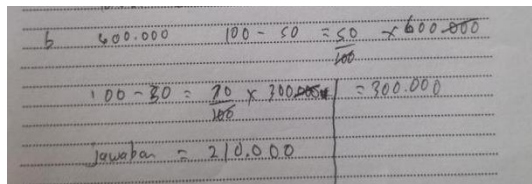 b 600.000 100 - 50 = 50/100 x 600.000
100 - 30 = 70/100 x 300.000 = 300.000
jawaban = 210.000